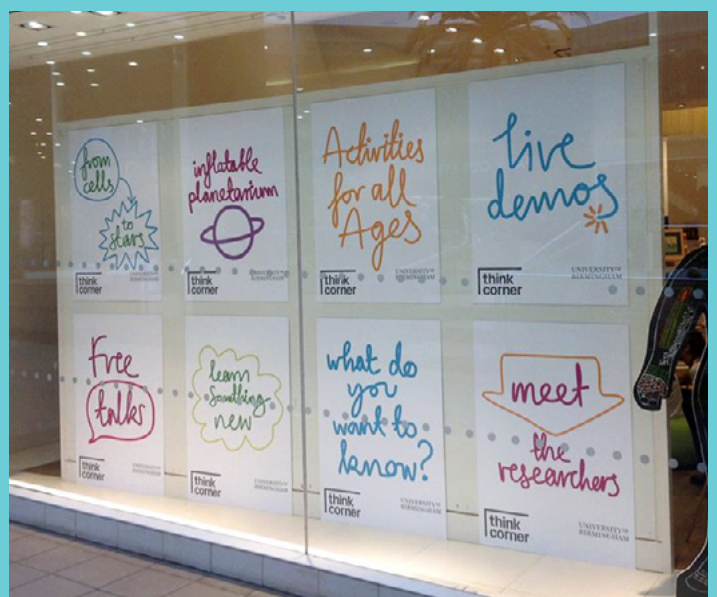 from
cells
to
stars
think
corner
UNIVERSITY OF
BIRMINGHAM
inflatable
planetarium
think
corner
UNIVERSITY OF
BIRMINGHAM
Activities
for all
Ages
think
corner
UNIVERSITY OF
BIRMINGHAM
live
demos
think
corner
UNIVERSITY OF
BIRMINGHAM
Free
talks
think
corner
UNIVERSITY OF
BIRMINGHAM
learn
something
new
think
corner
UNIVERSITY OF
BIRMINGHAM
what do
you
want to
know?
think
corner
UNIVERSITY OF
BIRMINGHAM
meet
the
researchers
think
corner
UNIVERSITY OF
BIRMINGHAM